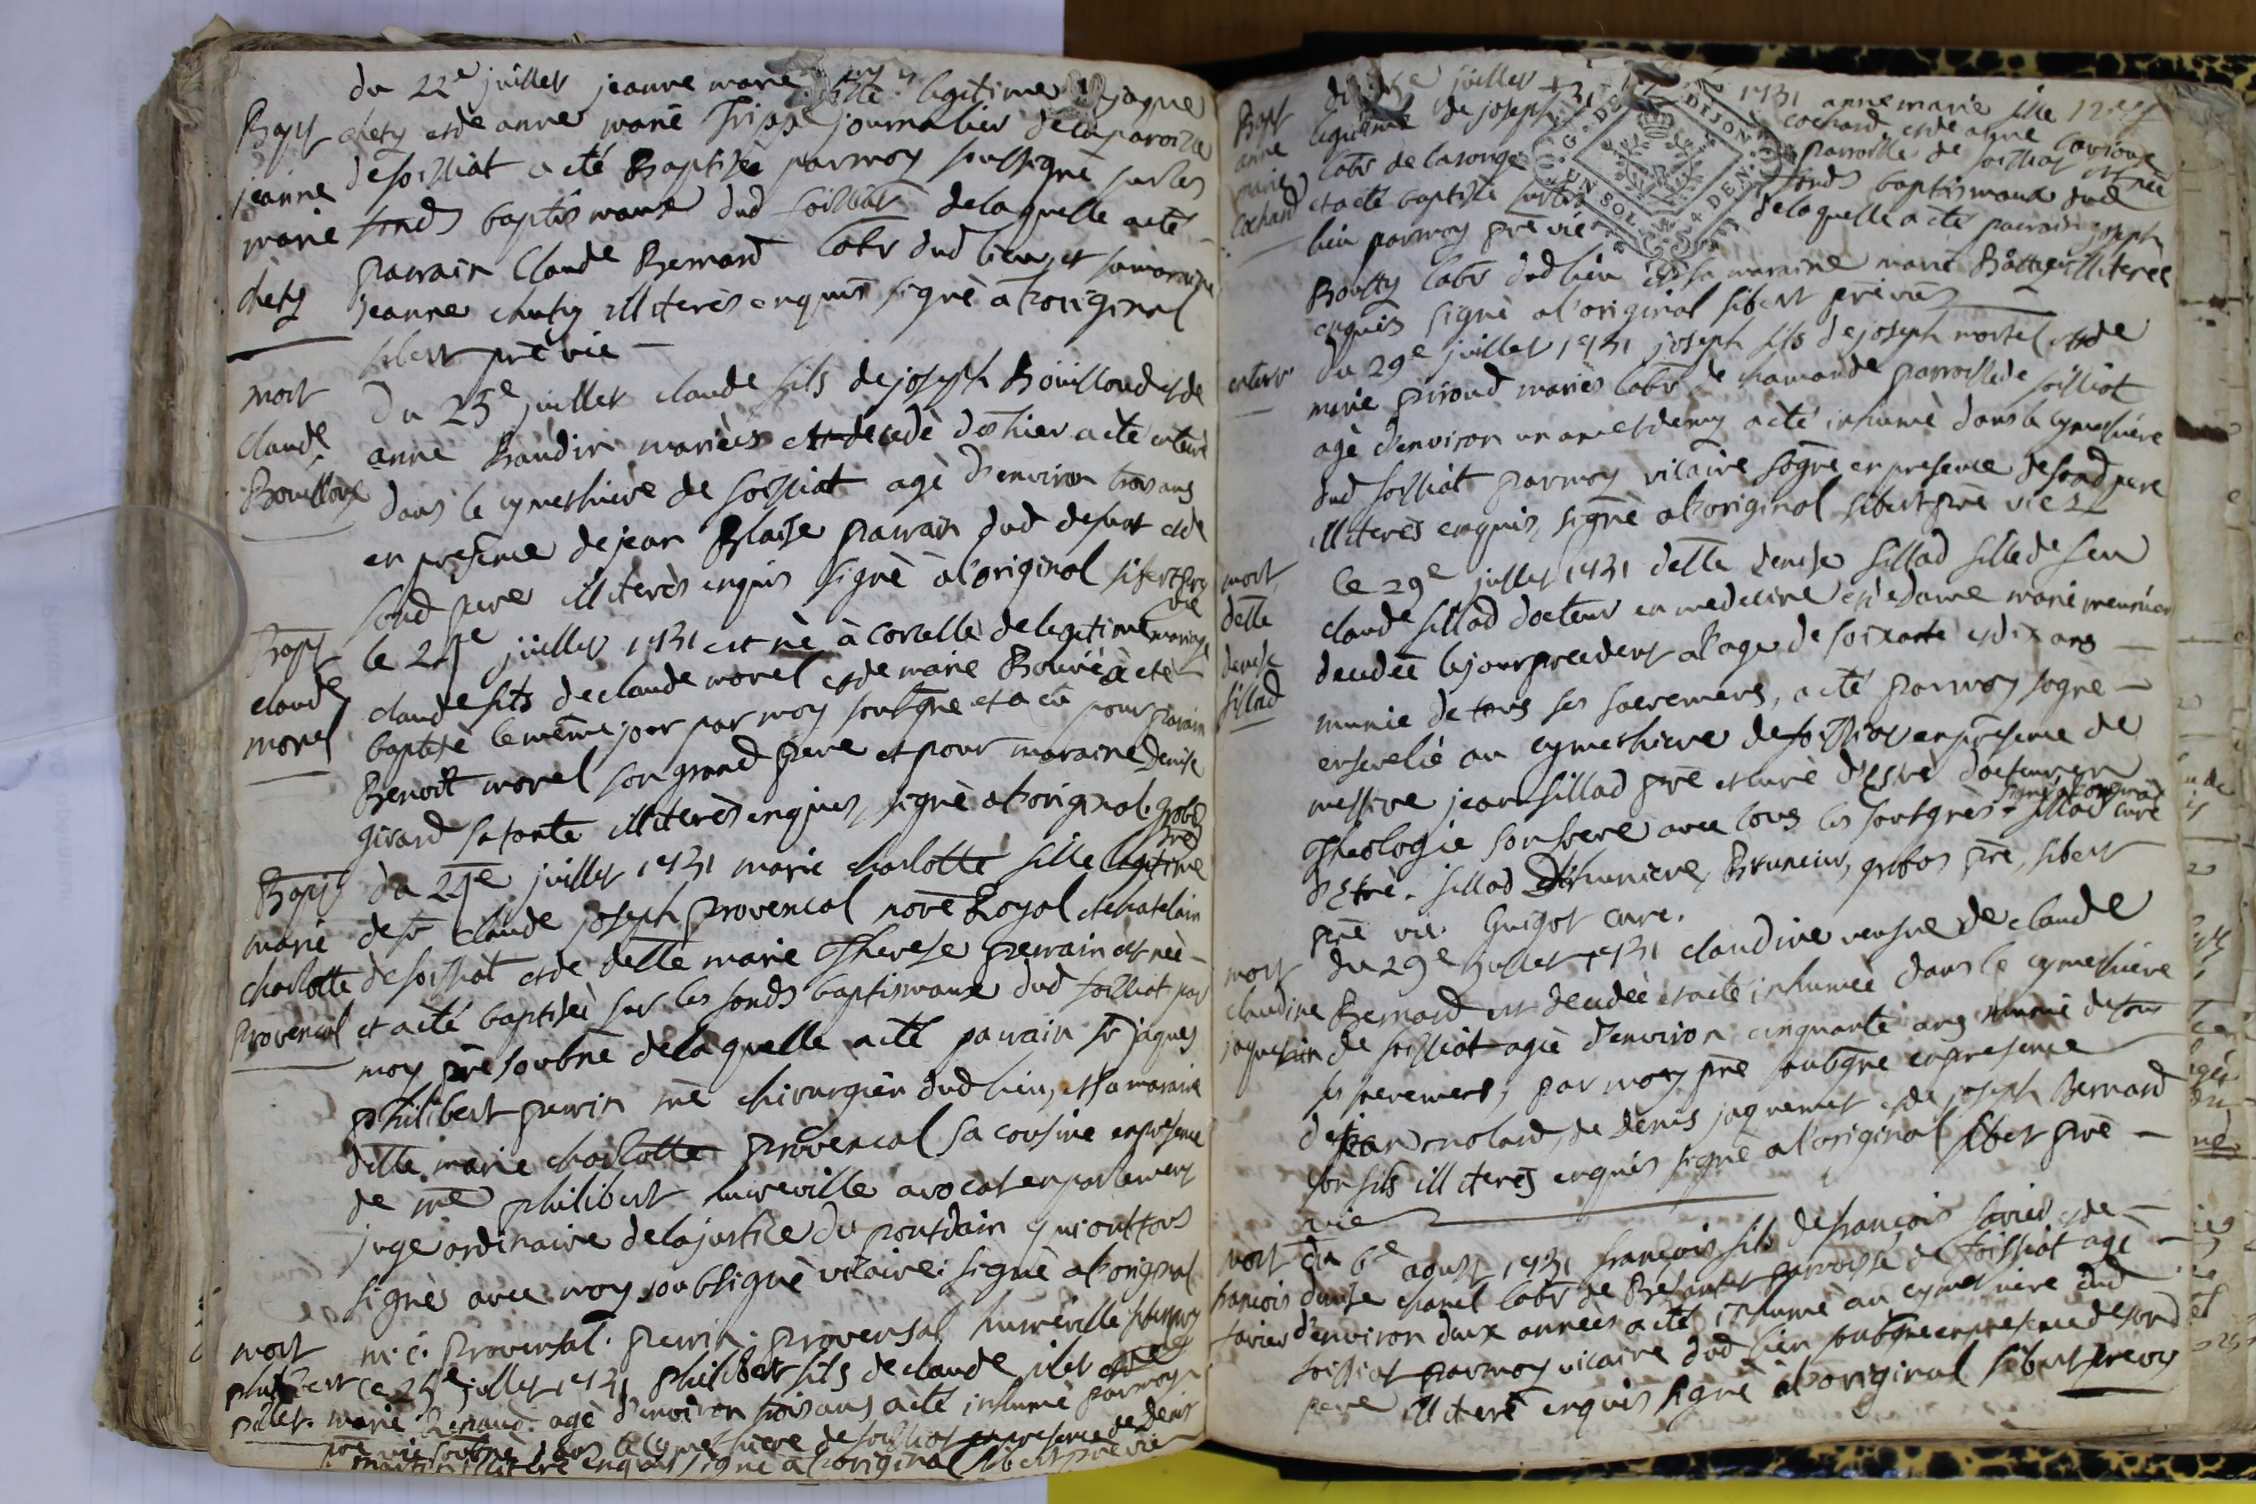 du 22e juillet jeanne marie fille legitime de jaque
Bapt
jeanne
marie
chety
chety et de anne marie Tripp journalier de la paroisse
de foissiat a eté Baptisée par moy soussigné sur les
fonds baptismaux dud foissiat de laquelle a eté
parrain Claude Bernard labr dud lieu, et sa maraine
jeanne chuty illiterès enquis signè a l'original
sibert prè vic
mort
claude
Bouilloux
Du 25e juillet claude fils de joseph Bouilloud et de
anne Baudin mariès decedè d'hier a eté enterrè
dans le cymethiere de foissiat agè d'environ trois ans
en presence de jean Blaise parrain dud defunt et de
sond pere illiterès enquis signè a l'original sibert prè
vic
Bapt
claude
morel
le 24e juillet 1731 est nè à Corcelle de legitime mariage
claude fils de claude morel et de marie Bouvié a eté
baptisé le même jour par moy soubgne et a eu pour parrain
Benoit morel son grand pere et pour maraine Denise
girard sa tante illiterès enquis, signè a l'original. grobos
prè
Bapt
marie
charlotte
Provencal
du 24e juillet 1731 marie charlotte fille legitime
de sr claude joseph provencal nore Royal et chatelain
de foissiat et de delle marie Therese perrain est nèe
et a eté baptiseè sur les fonds baptismaux dud foissiat par
moy prè soubne de laquelle a eté parrain sr jaques
philibert perrin mè chirurgien dud lieu, et sa maraine
delle marie charlotte provencal sa cousine en presence
de mè philibert hureville avocat en parlement
juge ordinaire de la justice du pontdain qui ont tous
signès avec moy soubsignè vicaire. signè a l'original
m. c. provensal. perrin. provensal hureville sibert prè
mort
philibert
pillet.
le 24e juillet 1731 philibert fils de claude pilet et de
marie Renaud agè d'environ trois ans a eté inhumè par moy
prè vic soubnè dans le cymethiere de foissiat en presence de denis
martin illiterè enquis signè a l'original sibert prè vic
Bapt
anne
marie
Cochard
juillet 1731 anne marie fille
legitime de joseph cochard et de anne
G. DE DIJON
UN SOL 4 DEN.
labr de la songe parroisse de foissiat est née
et a eté baptisée sur les fonds baptismaux dud
lieu par moy prè vic de laquelle a eté parrain joseph
Boutty labr dud lieu et sa maraine marie illiterès
enquis signè a l'original sibert prè vic
enterr.
du 29e juillet 1731 joseph fils de joseph mortel et de
marie piroud mariès labr de chamande parroisse de foissiat
agè d'environ un an et demy a eté inhumè dans le cymethiere
dud foissiat par moy vicaire sogne en presence de sond pere
illiterès enquis, signè a l'original sibert prè vic
mort
delle
denise
fillod
le 29e juillet 1731 delle denise fillod fille de feu
claude fillod docteur en medecine et de dame marie meunier
decedèe le jour precedent a l'age de soixante et dix ans
munie de tous ses sacremens, a eté par moy sogne
ensevelie au cymethiere de foissiat en presence de
messire jean fillod prè et curè d'Estrè docteur en
Theologie son frere avec tous les soubgnès signè a l'original fillod curè
d'Estrè. fillod Bruneier, grobos prè, sibert
prè vic Guigot curè.
mort
claudine
jaquemin
du 29e juillet 1731 claudine veufve de claude
Bernard est decedèe et a eté inhumèe dans le cymethiere
de foissiat agèe d'environ cinquante ans munie de tous
ses sacremens, par moy prè soubgne en presence
de jean molard, de denis jaquemet et de joseph Bernard
son fils illiterès enquis signè a l'original sibert prè
vic
mort
francois
favier
du 6e aoust 1731 francois fils de francois favier et de
denise chanel labr de parroisse de foissiat agè
d'environ deux annèes a eté inhumè au cymethiere dud
foissiat par moy vicaire dud lieu soubgne en presence de son
pere illiterè enquis signè a l'original sibert prè vic